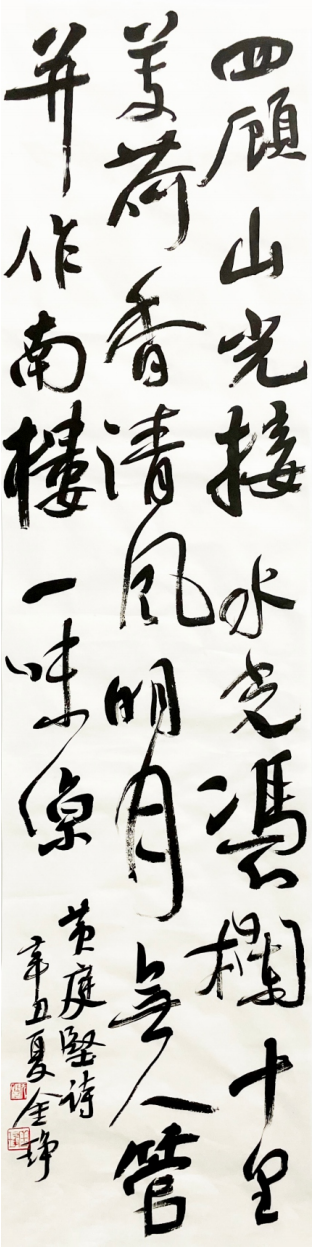 四顧山光接水光憑欄十里
芰荷香清風明月無人管
并作南樓一味凉
黄庭堅詩
辛丑夏金